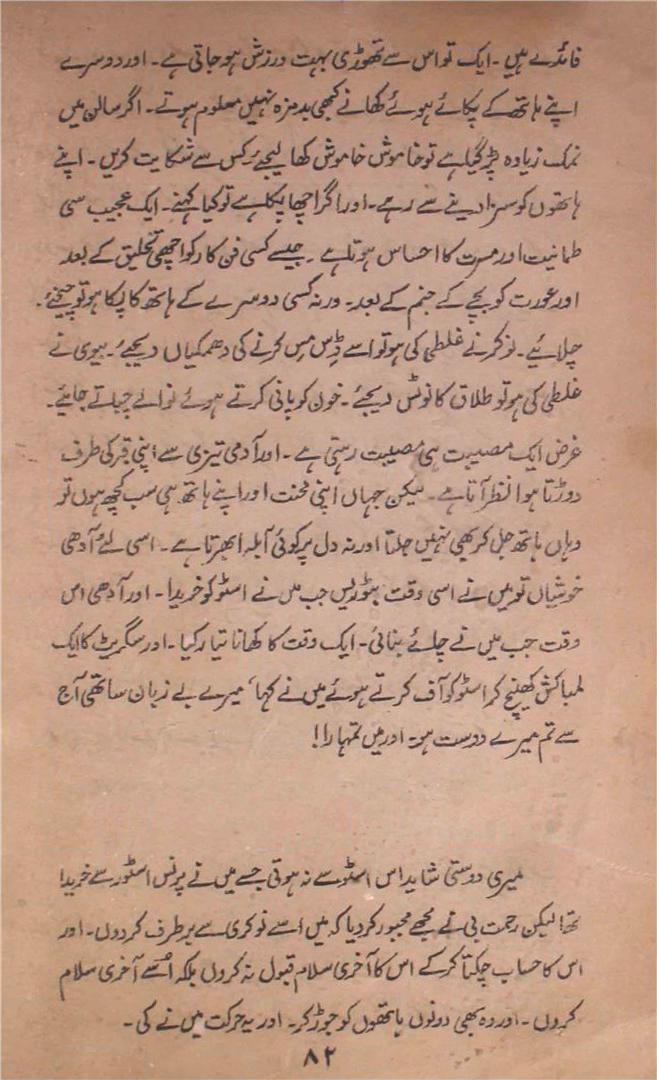 فائدے ہیں۔ ایک تو اس سے تھوڑی بہت ورزش ہو جاتی ہے۔ اور دوسرے
اپنے ہاتھ کے پکائے ہوئے کھانے کبھی بدمزہ نہیں معلوم ہوتے۔ اگر سالن میں
نمک زیادہ پڑ گیا ہے تو خاموش خاموش کھا لیجئے، کس سے شکایت کریں۔ اپنے
ہاتھوں کو سزا دینے سے رہے۔ اور اگر اچھا پکا ہے تو کیا کہنے۔ ایک عجیب سی
طمانیت اور مسرت کا احساس ہوتا ہے۔ جیسے کسی فن کار کو اچھی تخلیق کے بعد
اور عورت کو بچے کے جنم کے بعد۔ ورنہ کسی دوسرے کے ہاتھ کا پکا ہو تو چیخئے۔
چلائیے۔ نوکر نے غلطی کی ہو تو اسے ڈس مس کرنے کی دھمکیاں دیجئے۔ بیوی نے
غلطی کی ہو تو طلاق کا نوٹس دیجئے۔ خون کو پانی کرتے ہوئے نوالے چباتے جایئے۔
غرض ایک مصیبت ہی مصیبت رہتی ہے۔ اور آدمی تیزی سے اپنی قبر کی طرف
دوڑتا ہوا نظر آتا ہے۔ لیکن جہاں اپنی محنت اور اپنے ہاتھ ہی سب کچھ ہوں تو
وہاں ہاتھ جل کر بھی نہیں جلتا اور نہ دل پر کوئی آبلہ ابھرتا ہے۔ اسی لئے آدھی
خوشیاں تو میں نے اسی وقت بٹور لیں جب میں نے اسٹو کو خریدا۔ اور آدھی اس
وقت جب میں نے چائے بنائی۔ ایک وقت کا کھانا تیار کیا۔ اور سگریٹ کا ایک
لمبا کش کھینچ کر اسٹو کو آف کرتے ہوئے میں نے کہا، میرے بے زبان ساتھی آج
سے تم میرے دوست ہو۔ اور میں تمہارا!
میری دوستی شاید اس اسٹو سے نہ ہوتی جسے میں نے پرنس اسٹور سے خریدا
تھا لیکن رحمت بی نے مجھے مجبور کر دیا کہ میں اسے نوکری سے برطرف کر دوں۔ اور
اس کا حساب چکتا کر کے اس کا آخری سلام قبول نہ کروں بلکہ اُسے آخری سلام
کروں۔ اور وہ بھی دونوں ہاتھوں کو جوڑ کر۔ اور یہ حرکت میں نے کی۔
۸۲